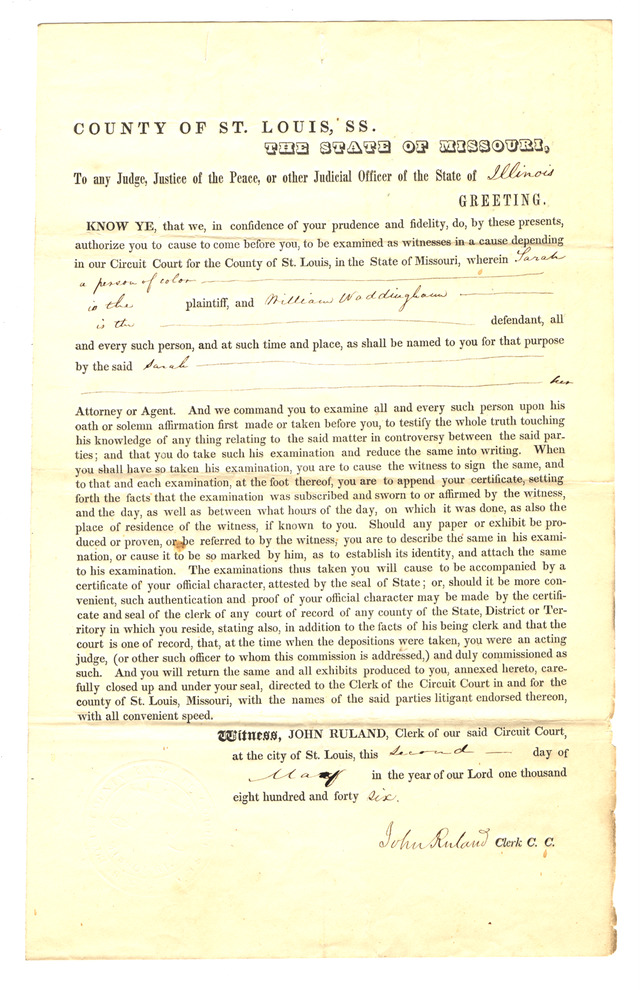 COUNTY OF ST. LOUIS, SS.
THE STATE OF MISSOURI,
To any Judge, Justice of the Peace, or other Judicial Officer of the State of Illinois
GREETING.
KNOW YE, that we, in confidence of your prudence and fidelity, do, by these presents,
authorize you to cause to come before you, to be examined as witnesses in a cause depending
in our Circuit Court for the County of St. Louis, in the State of Missouri, wherein Sarah
a person of color
is the plaintiff, and William Waddingham
is the defendant, all
and every such person, and at such time and place, as shall be named to you for that purpose
by the said Sarah
her
Attorney or Agent. And we command you to examine all and every such person upon his
oath or solemn affirmation first made or taken before you, to testify the whole truth touching
his knowledge of any thing relating to the said matter in controversy between the said par-
ties; and that you do take such his examination and reduce the same into writing. When
you shall have so taken his examination, you are to cause the witness to sign the same, and
to that and each examination, at the foot thereof, you are to append your certificate, setting
forth the facts that the examination was subscribed and sworn to or affirmed by the witness,
and the day, as well as between what hours of the day, on which it was done, as also the
place of residence of the witness, if known to you. Should any paper or exhibit be pro-
duced or proven, or be referred to by the witness, you are to describe the same in his exami-
nation, or cause it to be so marked by him, as to establish its identity, and attach the same
to his examination. The examinations thus taken you will cause to be accompanied by a
certificate of your official character, attested by the seal of State; or, should it be more con-
venient, such authentication and proof of your official character may be made by the certifi-
cate and seal of the clerk of any court of record of any county of the State, District or Ter-
ritory in which you reside, stating also, in addition to the facts of his being clerk and that the
court is one of record, that, at the time when the depositions were taken, you were an acting
judge, (or other such officer to whom this commission is addressed,) and duly commissioned as
such. And you will return the same and all exhibits produced to you, annexed hereto, care-
fully closed up and under your seal, directed to the Clerk of the Circuit Court in and for the
county of St. Louis, Missouri, with the names of the said parties litigant endorsed thereon,
with all convenient speed.
Witness, JOHN RULAND, Clerk of our said Circuit Court,
at the city of St. Louis, this second day of
May in the year of our Lord one thousand
eight hundred and forty six.
John Ruland Clerk C. C.